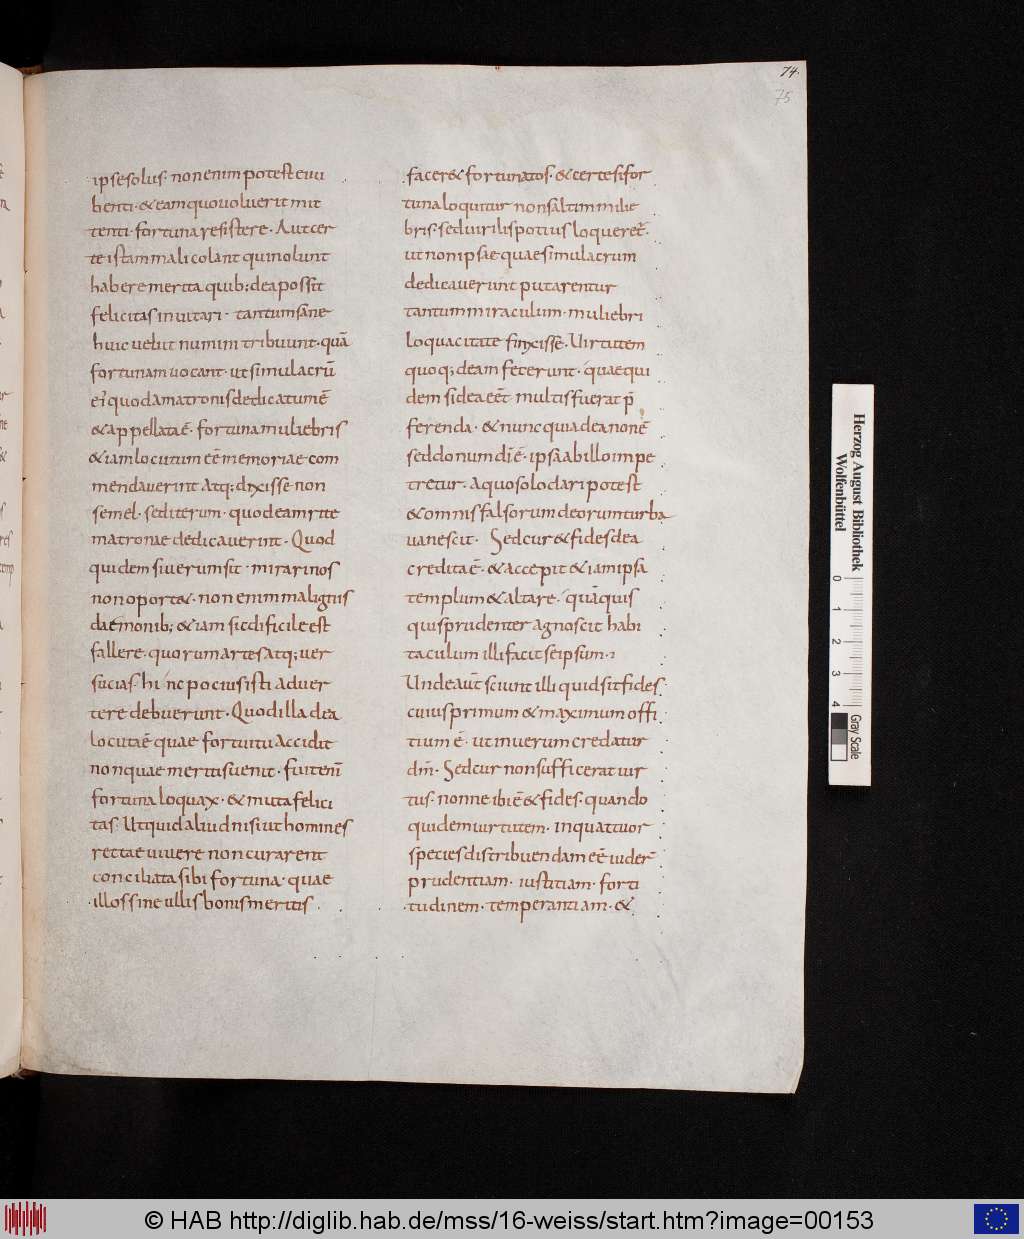 74.
75
ipse solus· non enim potest cui
benti·&eam quo uoluerit mit
tenti· fortuna resistere· Aut cer
te istam mali colant qui nolunt
habere merita quib; dea possit
felicitas inuitari· tantum sane
huic uelut numini tribuunt·quā
fortunam uocant· ut simulacrū
ei' quod a matronis dedicatum ē
& appellata ē· fortuna muliebris
& iam locutum eē memoriae com
mendauerint atq; dixisse non
semel· sed iterum· quod eam rite
matronae dedicauerint· Quod
quidem si uerum sit· mirari nos
non oport&· non enim malignis
daemonib; & iam sic dificile est
fallere· quorum artes atq; uer
sucias· hinc pocius isti aduer
tere debuerunt· Quod illa dea
locuta ē quae fortuitu accidit
non quae meritis uenit· fuit eni
fortuna loquax· & muta felici
tas· Ut quid aliud nisi ut homines
rectae uiuere non curarent
conciliata sibi fortuna· quae
illos sine ullis bonis meritis
facer& fortunatos· & certe si for
tuna loquitur non saltim mulie
bris· sed uirilis potius loqueret·
ut non ipsae quae simulacrum
dedicauerunt putarentur
tantum miraculum· muliebri
loquacitate finxisse· Uirtutem
quoq; deam fecerunt· quae qui
dem si dea eēt multis fuerat p̄
ferenda· & nunc quia dea non ē
sed donum dī ē· ipsa ab illo impe
tretur· a quo solo dari potest
& omnis falsorum deorum turba
uanescit· Sed cur & fides dea
credita ē· & accepit & iam ipsa
templum & altare· quā quis
quis prudenter agnoscit habi
taculum illi facit se ipsum·
Unde aut sciunt illi quid sit fides
cuius primum & maximum offi
tium ē· ut in uerum credatur
dm̄· Sed cur non suffecerat uir
tus· nonne ibi ē & fides· quando
quidem uirtutem· in quattuor
species distribuendam eē uider
prudentiam· iustitiam· forti
tudinem· temperantiam· &
Herzog August Bibliothek
Wolfenbüttel
0 1 2 3 4
Gray Scale
© HAB http://diglib.hab.de/mss/16-weiss/start.htm?image=00153